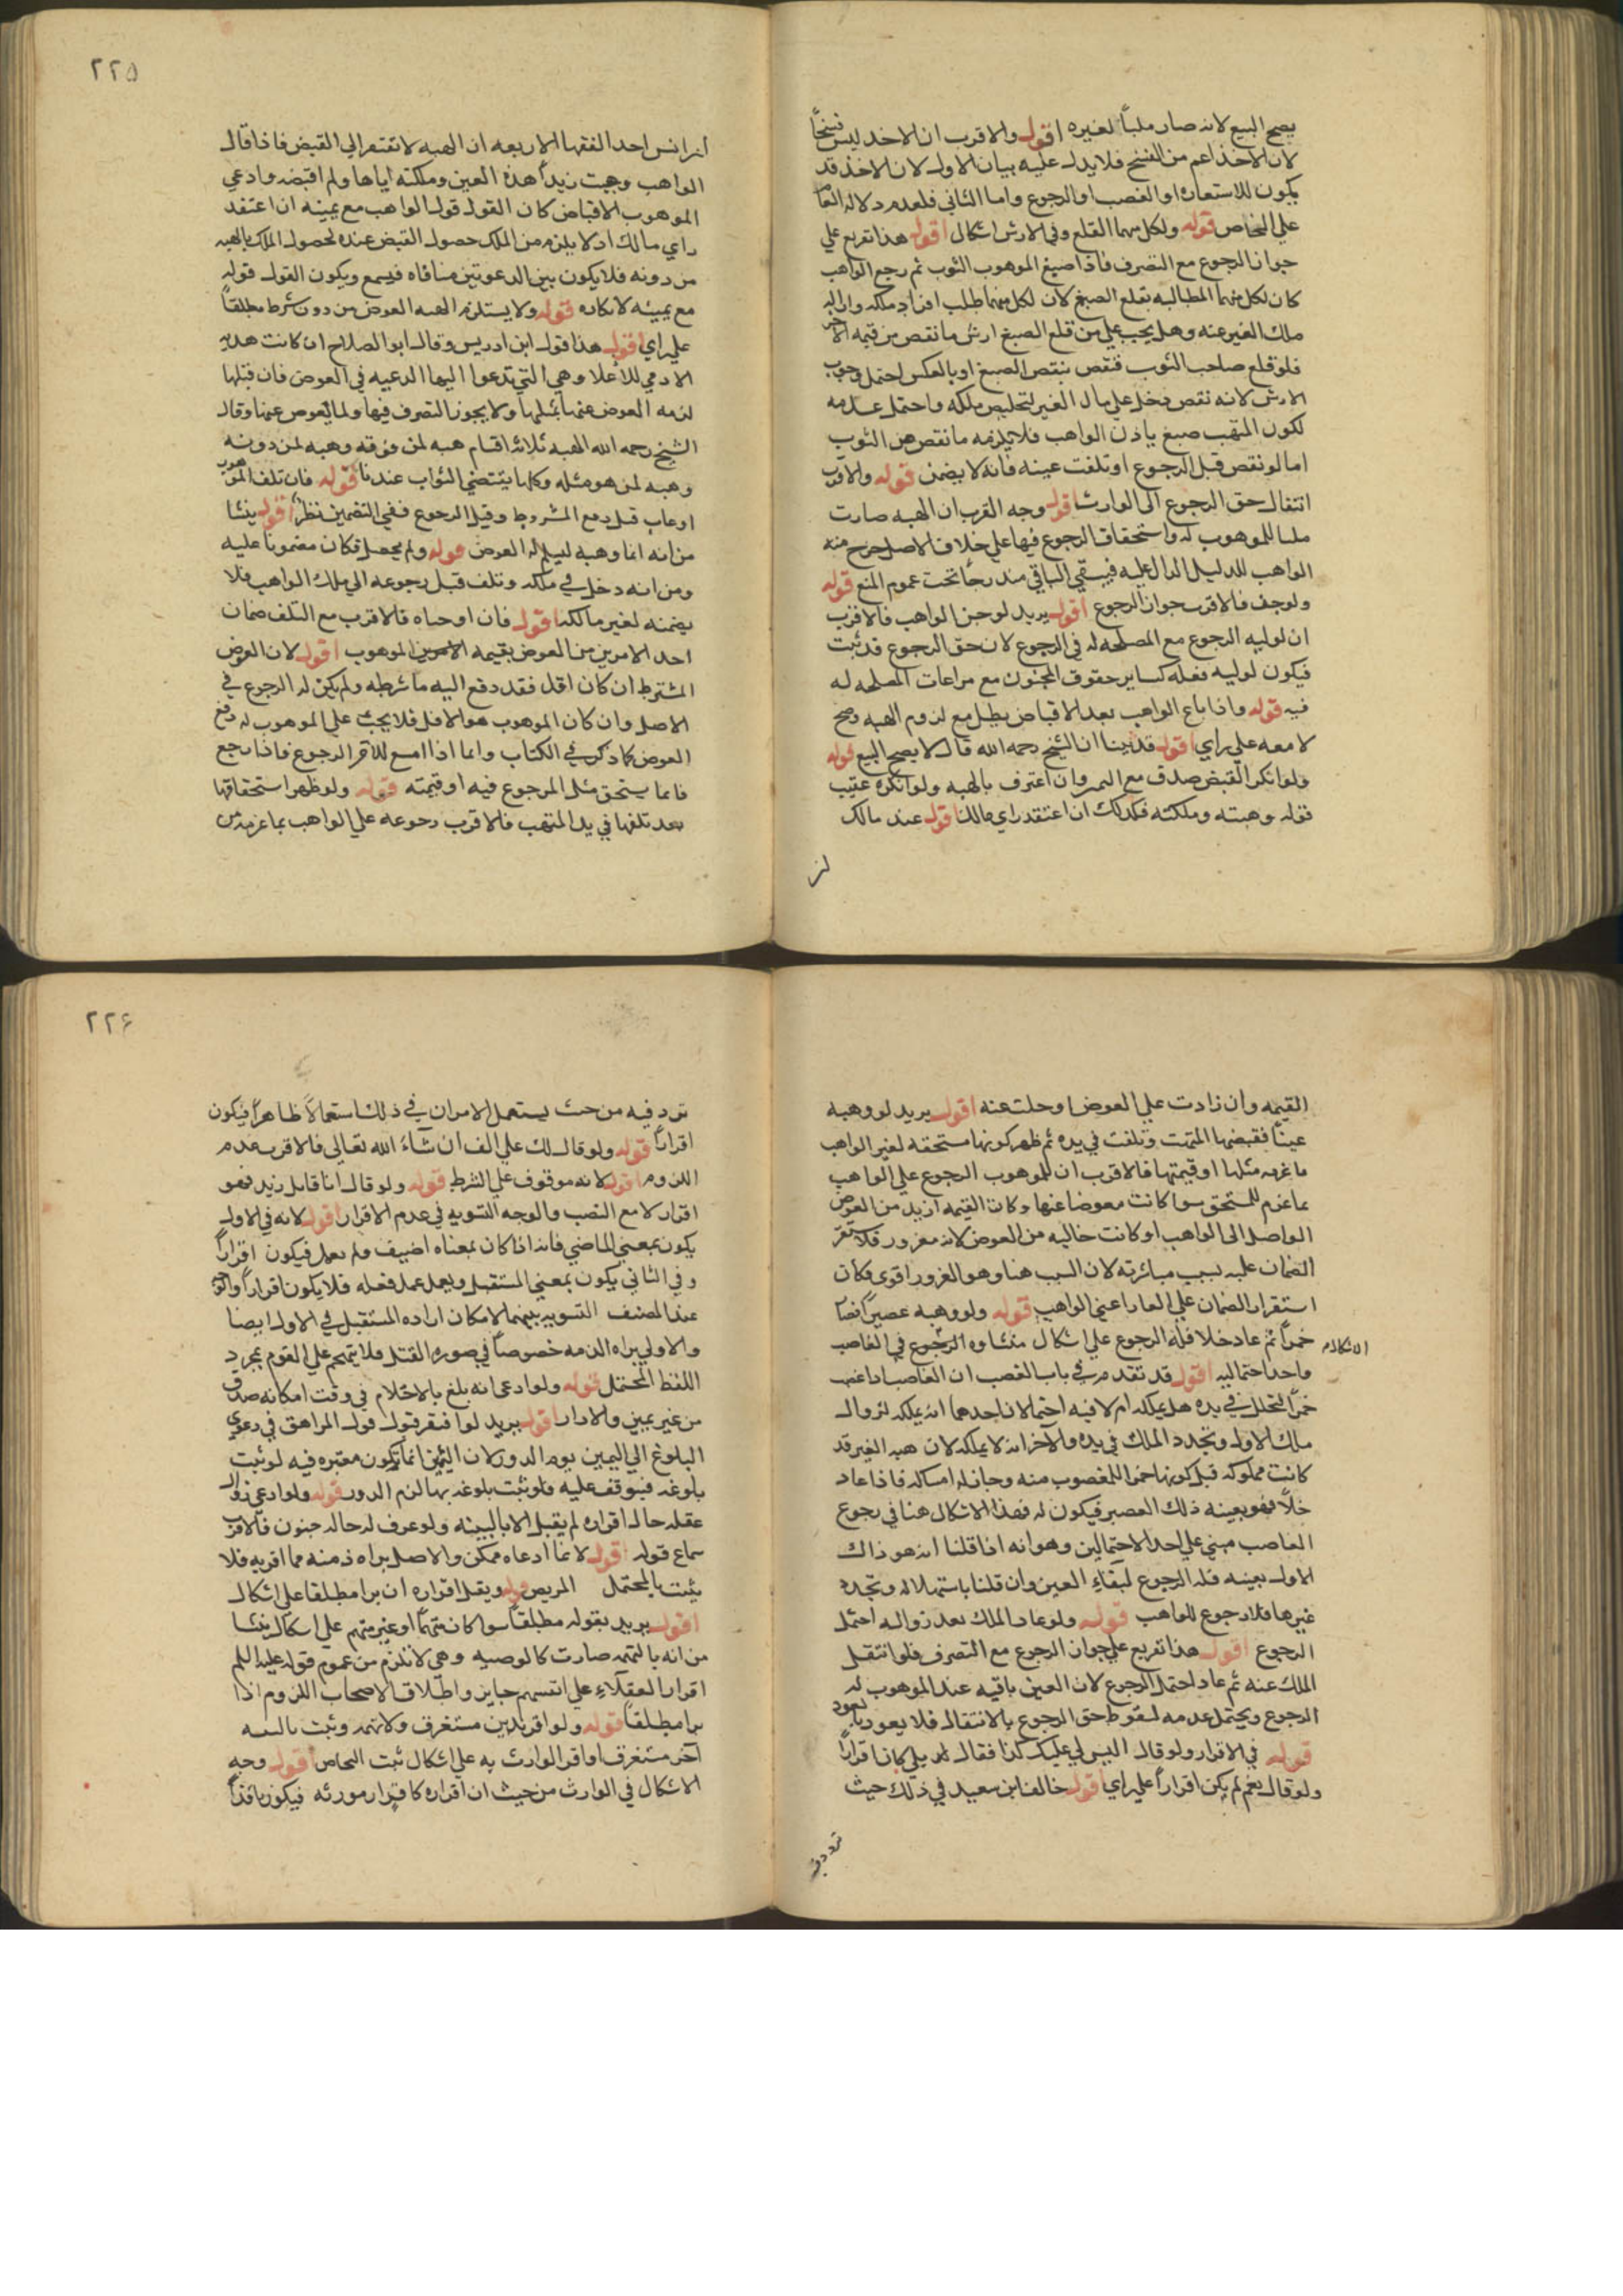 يصح البيع لانه صار ملباً لغيره اقول والاقرب ان الاخد ليس فسخاً
لان الاخذ اعم من الفسخ فلا يدل عليه بيان الاول لان الاخذ قد
يكون للاستعاده او الغصب او الرجوع واما الثاني فلعدم دلاله العام
علي الخاص قوله ولكل منهما القلع وفي الارش اشكال اقول هذا تفريع علي
جواز الرجوع مع التصرف فاذا صبغ الموهوب الثوب ثم رجع الواهب
كان لكل منهما المطالبه بقلع الصبغ لان لكل منهما طلب افراد ملكه وازاله
ملك الغير عنه وهل يجب علي من قلع الصبغ ارش ما نقص من قيمه الاخر
فلو قلع صاحب الثوب فنقص بنقص الصبغ او بالعكس احتمل وجوب
الارش لانه نقص دخل علي مال الغير لتخليص ملكه واحتمل عدمه
لكون المتهب صبغ باذن الواهب فلا يلزمه ما نقص من الثوب
اما لو نقص قبل الرجوع او تلفت عينه فانه لا يضمن قوله والاقرب
انتقال حق الرجوع الى الوارث اقول وجه القرب ان الهبه صارت
ملبا للموهوب له واستحقاق الرجوع فيها علي خلاف الاصل خرج منه
الواهب للدليل الدال عليه فيبقي الباقي مندرجاً تحت عموم المنع قوله
ولو جن فالاقرب جواز الرجوع اقول يريد لو جن الواهب فالاقرب
ان لوليه الرجوع مع المصلحه له في الرجوع لان حق الرجوع قد ثبت
فيكون لوليه فعله كساير حقوق المجنون مع مراعات المصلحه له
فيه قوله واذا باع الواهب بعد الاقباض بطل مع لزوم الهبه وصح
لا معه علي راي اقول قد بينا ان الشيخ رحمه الله قال لا يصح البيع قوله
ولو انكر القبض صدق مع اليمين وان اعترف بالهبه ولو انكره عقيب
قوله وهبته وملكته فكذلك ان اعتقد راي مالك اقول عند مالك
لنر
٢٢٥
لنر انس احد الفقها الاربعه ان الهبه لا تفتقر الي القبض فاذا قال
الواهب وهبت زيداً هذه العين وملكته اياها ولم اقبضه وادعي
الموهوب الاقباض كان القول قول الواهب مع يمينه ان اعتقد
راي مالك اذ لا يلزم من الملك حصول القبض عنده لحصول الملك بالهبه
من دونه فلا يكون بين الدعوتين منافاه فيسمع ويكون القول قوله
مع يمينه لانكاره قوله ولا يستلزم الهبه العوض من دون شرط مطلقاً
علي راي اقول هذا قول ابن ادريس وقال ابو الصلاح ان كانت هديه
الادمي للاعلا وهي التي تدعوا اليها الدعيه في العوض فان قبلها
لزمه العوض عنها بمثلها ولا يجوز التصرف فيها ولما يعوض عنها وقال
الشيخ رحمه الله الهبه ثلاثه اقسام هبه لمن فوقه وهبه لمن دونه
وهبه لمن هو مثله وكلها يقتضي الثواب عندنا قوله فان تلف الموهوب
او عاب قبل دفع المشروط وقبل الرجوع ففي التضمين نظر اقول ينشا
من انه انما وهبه ليسلم له العوض قوله ولم يحصل فكان مضموناً عليه
ومن انه دخل في ملكه وتلف قبل رجوعه الي ملك الواهب فلا
يضمنه لغير مالكه اقول فان اوجباه فالاقرب مع التلف ضمان
احد الامرين من العوض بقيمه الموهوب اقول لان العوض
المشترط ان كان اقل فقد دفع اليه ما شرطه ولم يكن له الرجوع في
الاصل وان كان الموهوب هو الاقل فلا يجب علي الموهوب له دفع
العوض كما ذكر في الكتاب وانما اذا امتنع الاخر الرجوع فاذا رجع
فانما يستحق مثل المرجوع فيه او قيمته قوله ولو ظهر استحقاقها
بعد تلفها في يد المتهب فالاقرب رجوعه علي الواهب بما غرمه من
القيمه وان زادت علي العوض او خلت عنه اقول يريد لو وهبه
عيناً فقبضها المتهب وتلفت في يده ثم ظهر كونها مستحقه لغير الواهب
ما غرمه مثلها او قيمتها فالاقرب ان للموهوب الرجوع علي الواهب
بما غرم للمستحق سوا كانت معوضا عنها وكانت القيمه ازيد من العوض
الواصل الى الواهب او كانت خاليه من العوض لانه مغرور فلا يستقر
الضمان عليه بسبب مباشرته لان السبب هنا وهو الغرور اقوى فكان
استقرار الضمان علي الغار اعني الواهب قوله ولو وهبه عصيراً فصار
خمراً ثم عاد خلا فله الرجوع علي اشكال منشاوه الرجوع في الغاصب
الاشكال
واحد احتماليه اقول قد تقدم في باب الغصب ان الغاصب اذا غصب
خمراً فتخلل في يده هل يملكه ام لا فيه احتمالان احدهما انه يملكه لزوال
ملك الاول وتجدد الملك في يده والآخر انه لا يملكه لان هبه الغير قد
كانت مملوكه قبل كونها خمرا للمغصوب منه وجاز له امساكه فاذا عاد
خلاً فهو بعينه ذلك العصير فيكون له فهذا الاشكال هنا في رجوع
الغاصب مبني علي احد الاحتمالين وهو انه اذا قلنا انه هو ذاك
الاول بعينه فله الرجوع لبقاء العين وان قلنا باستهلاله وتجدد
غيرها فلا رجوع للواهب قوله ولو عاد الملك بعد زواله احتمل
الرجوع اقول هذا تفريع علي جواز الرجوع مع التصرف فلو انتقل
الملك عنه ثم عاد احتمل الرجوع لان العين باقيه عند الموهوب له
الرجوع ويحتمل عدمه لسقوط حق الرجوع بالانتقال فلا يعود بالعود
قوله في الاقرار ولو قال اليس لي عليك كذا فقال بلي كان اقراراً
ولو قال نعم لم يكن اقراراً علي راي اقول خالف ابن سعيد في ذلك حيث
تردد
٢٢۶
تردد فيه من حيث يستعمل الامران في ذلك استعمالاً ظاهراً فيكون
اقراراً قوله ولو قال لك علي الف ان شآء الله تعالى فالاقرب عدم
اللزوم اقول لانه موقوف علي الشرط قوله ولو قال انا قاتل زيد فهو
اقرار لا مع النصب والوجه التسويه في عدم الاقرار اقول لانه في الاول
يكون بمعني الماضي فانه اذا كان بمعناه اضيف ولم يعمل فيكون اقراراً
وفي الثاني يكون بمعني المستقبل ويعمل عمل فعله فلا يكون اقراراً والوجه
عند المصنف التسويه بينهما لامكان اراده المستقبل في الاول ايضا
والاولي براه الذمه خصوصاً في صوره القتل فلا يتهجم علي القوم بمجرد
اللفظ المحتمل قوله ولو ادعى انه بلغ بالاحتلام في وقت امكانه صدق
من غير يمين والا دار اقول يريد لو افتقر قبول قول المراهق في دعوي
البلوغ الي اليمين يوم الدور لان اليمين انما تكون معتبره فيه لو ثبت
بلوغه فيتوقف عليه فلو ثبت بلوغه بها لزم الدور قوله ولو ادعي زوال
عقله حال اقراره لم يقبل الا بالبينه ولو عرف له حاله جنون فالاقرب
سماع قوله اقول لان ما ادعاه ممكن والاصل براه ذمته مما اقر به فلا
يثبت بالمحتمل المريض قوله ويقبل اقراره ان برا مطلقا على اشكال
اقول يريد بقوله مطلقاً سوا كان متهماً او غير متهم علي اشكال ينشا
من انه بالتهمه صارت كالوصيه وهي لا تلزم من عموم قوله عليه السلم
اقرار العقلاء على انفسهم جايز واطلاق الاصحاب اللزوم اذا
برا مطلقاً قوله ولو اقر بدين مستغرق ولا تهمه وثبت بالبينه
آخر مستغرق او اقر الوارث به علي اشكال ثبت التحاص اقول وجه
الاشكال في الوارث من حيث ان اقراره كاقرار مورثه فيكون نافذاً